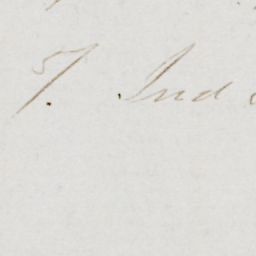 57. Ind